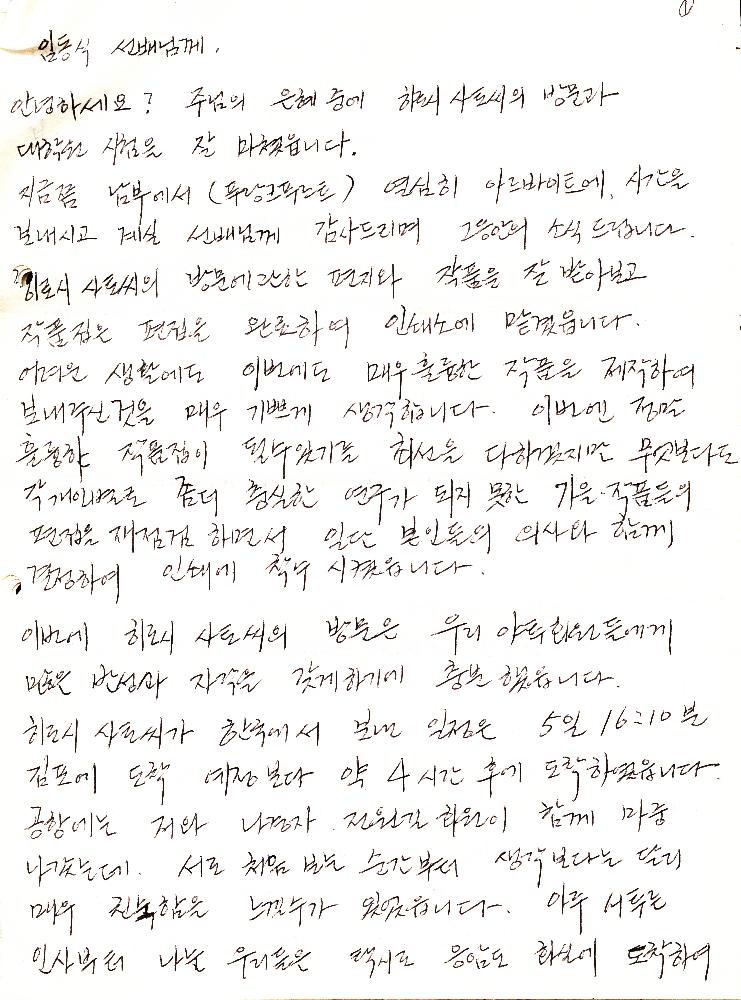 ①
임동식 선배님께.
안녕하세요? 주님의 은혜 중에 히로시 사토씨의 방문과
대학원 시험을 잘 마쳤읍니다.
지금쯤 남부에서 (푸랑크푸르트) 열심히 아르바이트에, 시간을
보내시고 계실 선배님께 감사드리며 그동안의 소식 드립니다.
히로시 사토씨의 방문에 관한 편지와 작품을 잘 받아보고
작품집은 편집을 완료하여 인쇄소에 맡겼읍니다.
어려운 생활에도 이번에도 매우 훌륭한 작품을 제작하여
보내주신것을 매우 기쁘게 생각합니다. 이번엔 정말
훌륭한 작품집이 될수있기를 최선을 다하겠지만 무엇보다도
각 개인별로 좀더 충실한 연구가 되지 못한 가을·작품들의
편집을 재점검 하면서 일단 본인들의 의사와 함께
결정하여 인쇄에 착수 시켰읍니다.
이번에 히로시 사토씨의 방문은 우리 야투회원들에게
많은 반성과 자각을 갖게하기에 충분했읍니다.
히로시 사토씨가 한국에서 보낸 일정은 5일 16:10분
김포에 도착 예정보다 약 4시간 후에 도착하였읍니다.
공항에는 저와 나경자. 전원길 회원이 함께 마중
나갔는데. 서로 처음 보는 순간부터 생각보다는 달리
매우 친숙함을 느낄수가 있었읍니다. 아주 서투른
인사부터 나눈 우리들은 택시로 응암동 화실에 도착하여